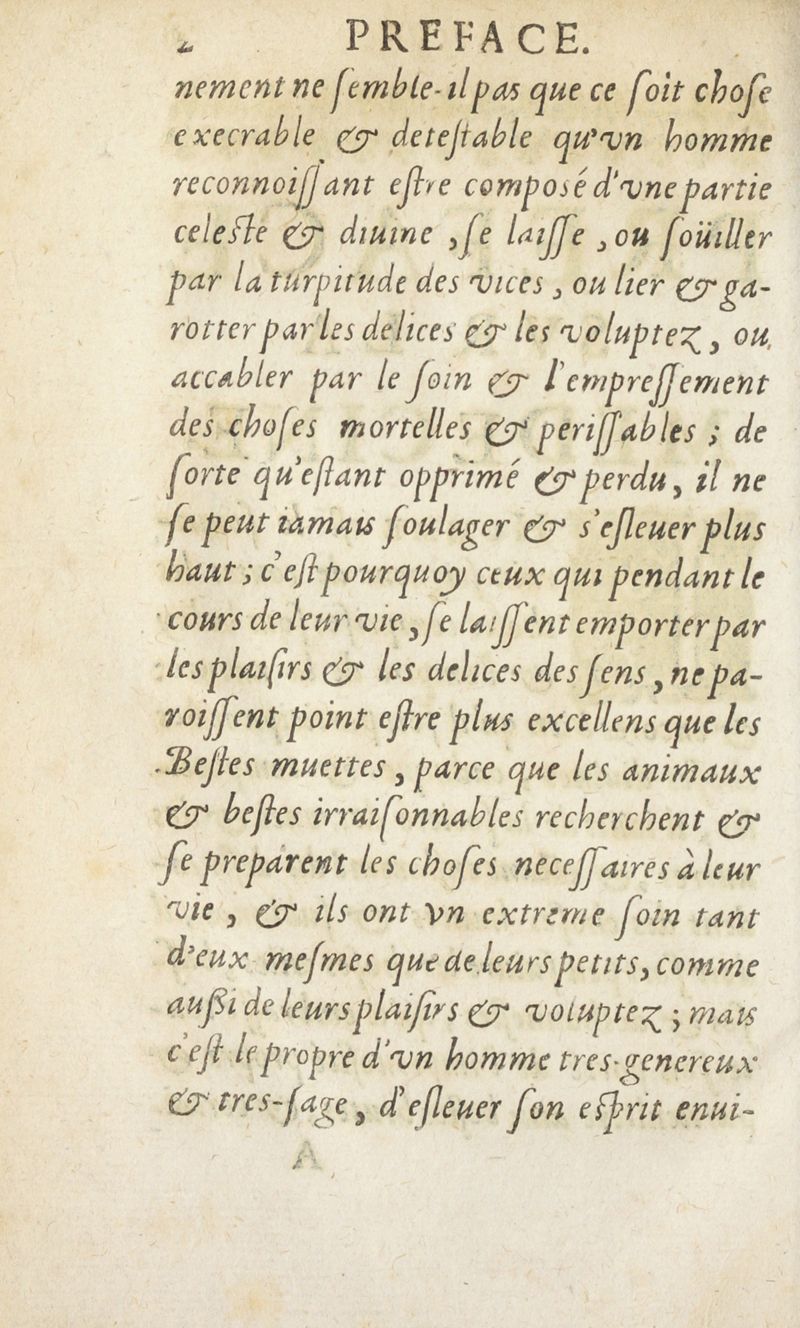 PREFACE.
nement ne ſemble-il pas que ce ſoit choſe
execrable & deteſtable qu'vn homme
reconnoiſſant eſtre composé d'vne partie
celeſte & diuine , ſe laiſſe , ou ſoüiller
par la turpitude des vices , ou lier & ga-
rotter par les delices & les voluptez , ou
accabler par le ſoin & l'empreſſement
des choſes mortelles & periſſables ; de
ſorte qu'eſtant opprimé & perdu , il ne
ſe peut iamais ſoulager & s'eſleuer plus
haut ; c'eſt pourquoy ceux qui pendant le
cours de leur vie , ſe laiſſent emporter par
les plaiſirs & les delices des ſens , ne pa-
roiſſent point eſtre plus excellens que les
Beſtes muettes , parce que les animaux
& beſtes irraiſonnables recherchent &
ſe preparent les choſes neceſſaires à leur
vie , & ils ont vn extreme ſoin tant
d'eux meſmes que de leurs petits, comme
auſſi de leurs plaiſirs & voluptez ; mais
c'eſt le propre d'vn homme tres-genereux
& tres-ſage , d'eſleuer ſon eſprit enui-